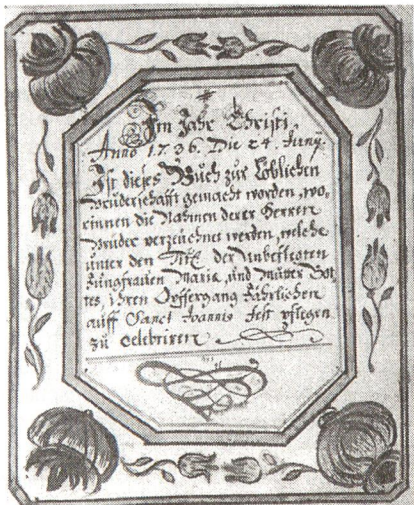 Im Jahr Christi
Anno 1736. Die 24. Junÿ.
Ist dieses Buch zur Löblichen
Bruderschafft gemacht worden, wo,
rinnen die Nahmen derer Herren
Brüder verzeichnet werden, welche
unter den Titel der Unbefleckten
Jungfrauen Mariæ, und Mutter Got,
tes, ihren Opffergang Jährlichen
auff Sanct Joannis Fest pflegen
zu celebriren